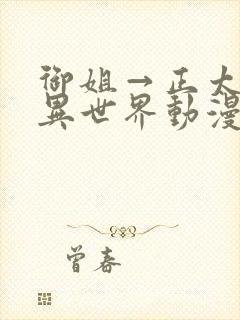 御姐→正太
異世界動漫
曾春